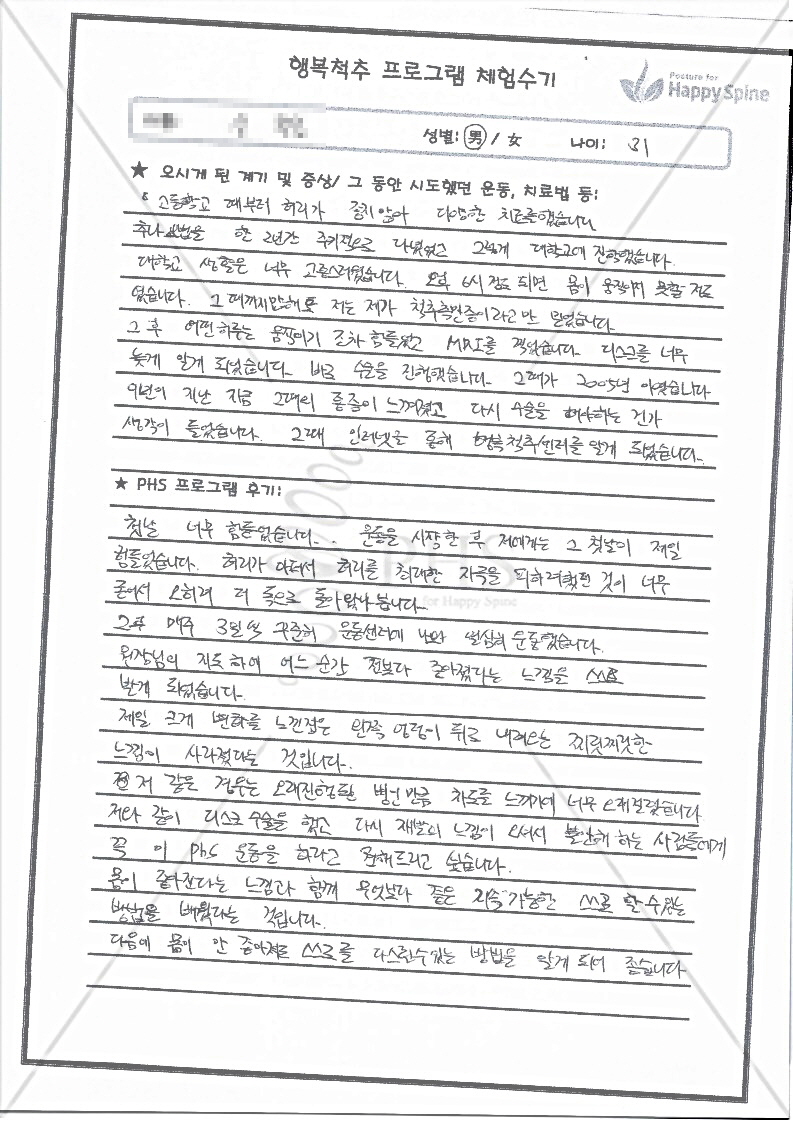 행복척추 프로그램 체험수기
Posture for
Happy Spine
성별: 男 / 女 나이: 31
★ 오시게 된 계기 및 증상/ 그 동안 시도했던 운동, 치료법 등:
고등학교 때부터 허리가 좋지 않아 다양한 치료를 했습니다
추나요법을 한 2년간 주기적으로 다녔었고 그렇게 대학교에 진학했습니다.
대학교 생활은 너무 고통스러웠습니다. 오후 6시 정도 되면 몸이 움직이지 못할 정도
였습니다. 그때까지만해도 저는 제가 척추측만증이라고만 믿었습니다
그 후 어떤 하루는 움직이기 조차 힘들었고 MRI를 찍었습니다. 디스크를 너무
늦게 알게 되었습니다. 바로 수술을 진행했습니다. 그때가 2005년 이었습니다
9년이 지난 지금 그때의 통증이 느껴졌고 다시 수술을 해야하는 건가
생각이 들었습니다. 그때 인터넷을 통해 행복척추센터를 알게 되었습니다.
★ PHS 프로그램 후기:
첫날 너무 힘들었습니다.. 운동을 시작한 후 저에게는 그 첫날이 제일
힘들었습니다. 허리가 아파서 허리를 최대한 자극을 피하려했던 것이 너무
굳어서 오히려 더 독으로 돌아왔나 봅니다.
PHS
for Happy Spine
그후 매주 3일씩 꾸준히 운동센터에 나와 열심히 운동했습니다.
원장님의 지도 하에 어느 순간 전보다 좋아졌다는 느낌을 스스로
받게 되었습니다.
제일 크게 변화를 느낀점은 왼쪽 엉덩이 뒤로 내려오는 찌릿찌릿한
느낌이 사라졌다는 것입니다.
저 같은 경우는 오래진행된 병인 만큼 차도를 느끼기에 너무 오래걸렸습니다
저와 같이 디스크 수술을 했고 다시 재발의 느낌이 오셔서 불안해 하는 사람들에게
꼭 이 PhS 운동을 하라고 전해드리고 싶습니다.
몸이 좋아진다는 느낌과 함께 무엇보다 좋은 지속가능한 스스로 할수있는
방법을 배웠다는 것입니다.
다음에 몸이 안 좋아져도 스스로를 다스릴수있는 방법을 알게 되어 좋습니다